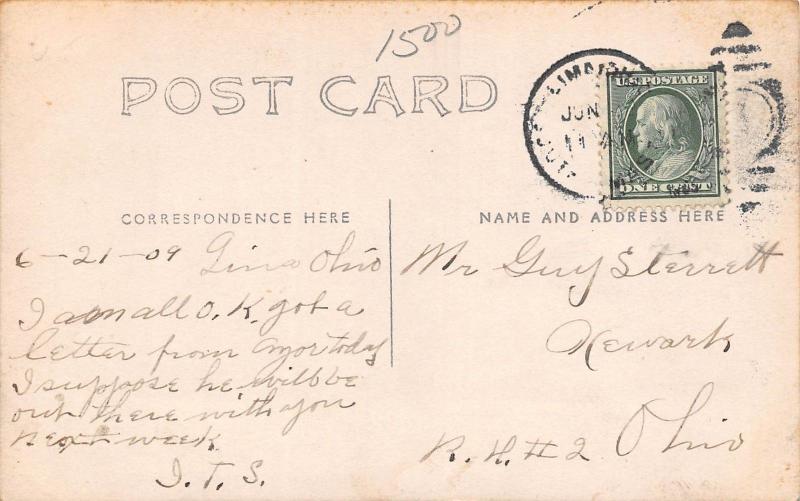 1500
POST CARD
LIMA
JUN
U.S. POSTAGE
ONE CENT
CORRESPONDENCE HERE
NAME AND ADDRESS HERE
6-21-09 Lima Ohio
I am all O.K. got a
letter from today
I suppose he will be
out there with you
next week
I.T.S.
Mr Guy Sterrett
Newark
R.H.#2 Ohio